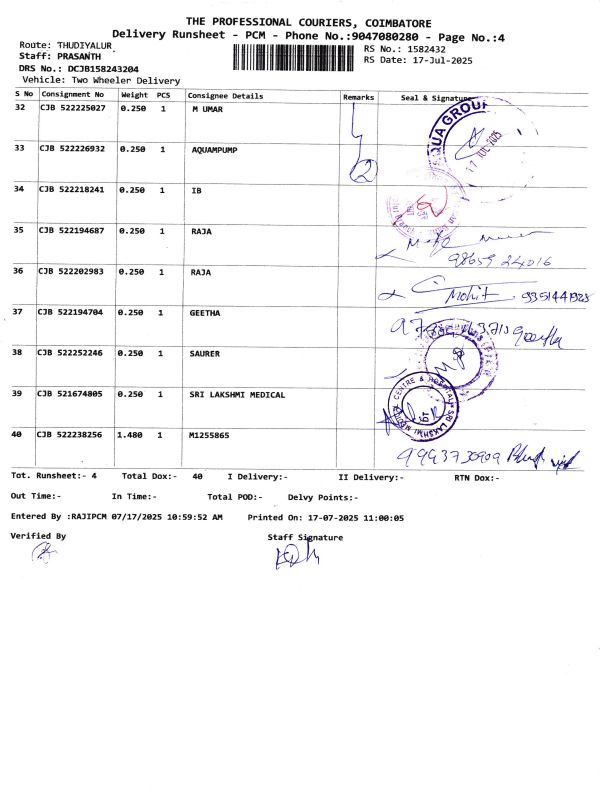 THE PROFESSIONAL COURIERS, COIMBATORE
Delivery Runsheet - PCM - Phone No.:9047080280 - Page No.:4
Route: THUDIYALUR
RS No.: 1582432
Staff: PRASANTH
RS Date: 17-Jul-2025
DRS No.: DCJB158243204
Vehicle: Two Wheeler Delivery
S No Consignment No Weight PCS Consignee Details Remarks Seal & Signature
32 CJB 522225027 0.250 1 M UMAR
AQUA GROUP
17 JUL 2025
33 CJB 522226932 0.250 1 AQUAMPUMP
2
34 CJB 522218241 0.250 1 IB
35 CJB 522194687 0.250 1 RAJA
98659 24016
36 CJB 522202983 0.250 1 RAJA
Mohit 9351441928
37 CJB 522194704 0.250 1 GEETHA
Geetha
38 CJB 522252246 0.250 1 SAURER
39 CJB 521674805 0.250 1 SRI LAKSHMI MEDICAL
SRI LAKSHMI MEDICAL CENTRE & HOSPITAL
40 CJB 522238256 1.480 1 M1255865
9993730909
Tot. Runsheet:- 4 Total Dox:- 40 I Delivery:- II Delivery:- RTN Dox:-
Out Time:- In Time:- Total POD:- Delvy Points:-
Entered By :RAJIPCM 07/17/2025 10:59:52 AM Printed On: 17-07-2025 11:00:05
Verified By Staff Signature